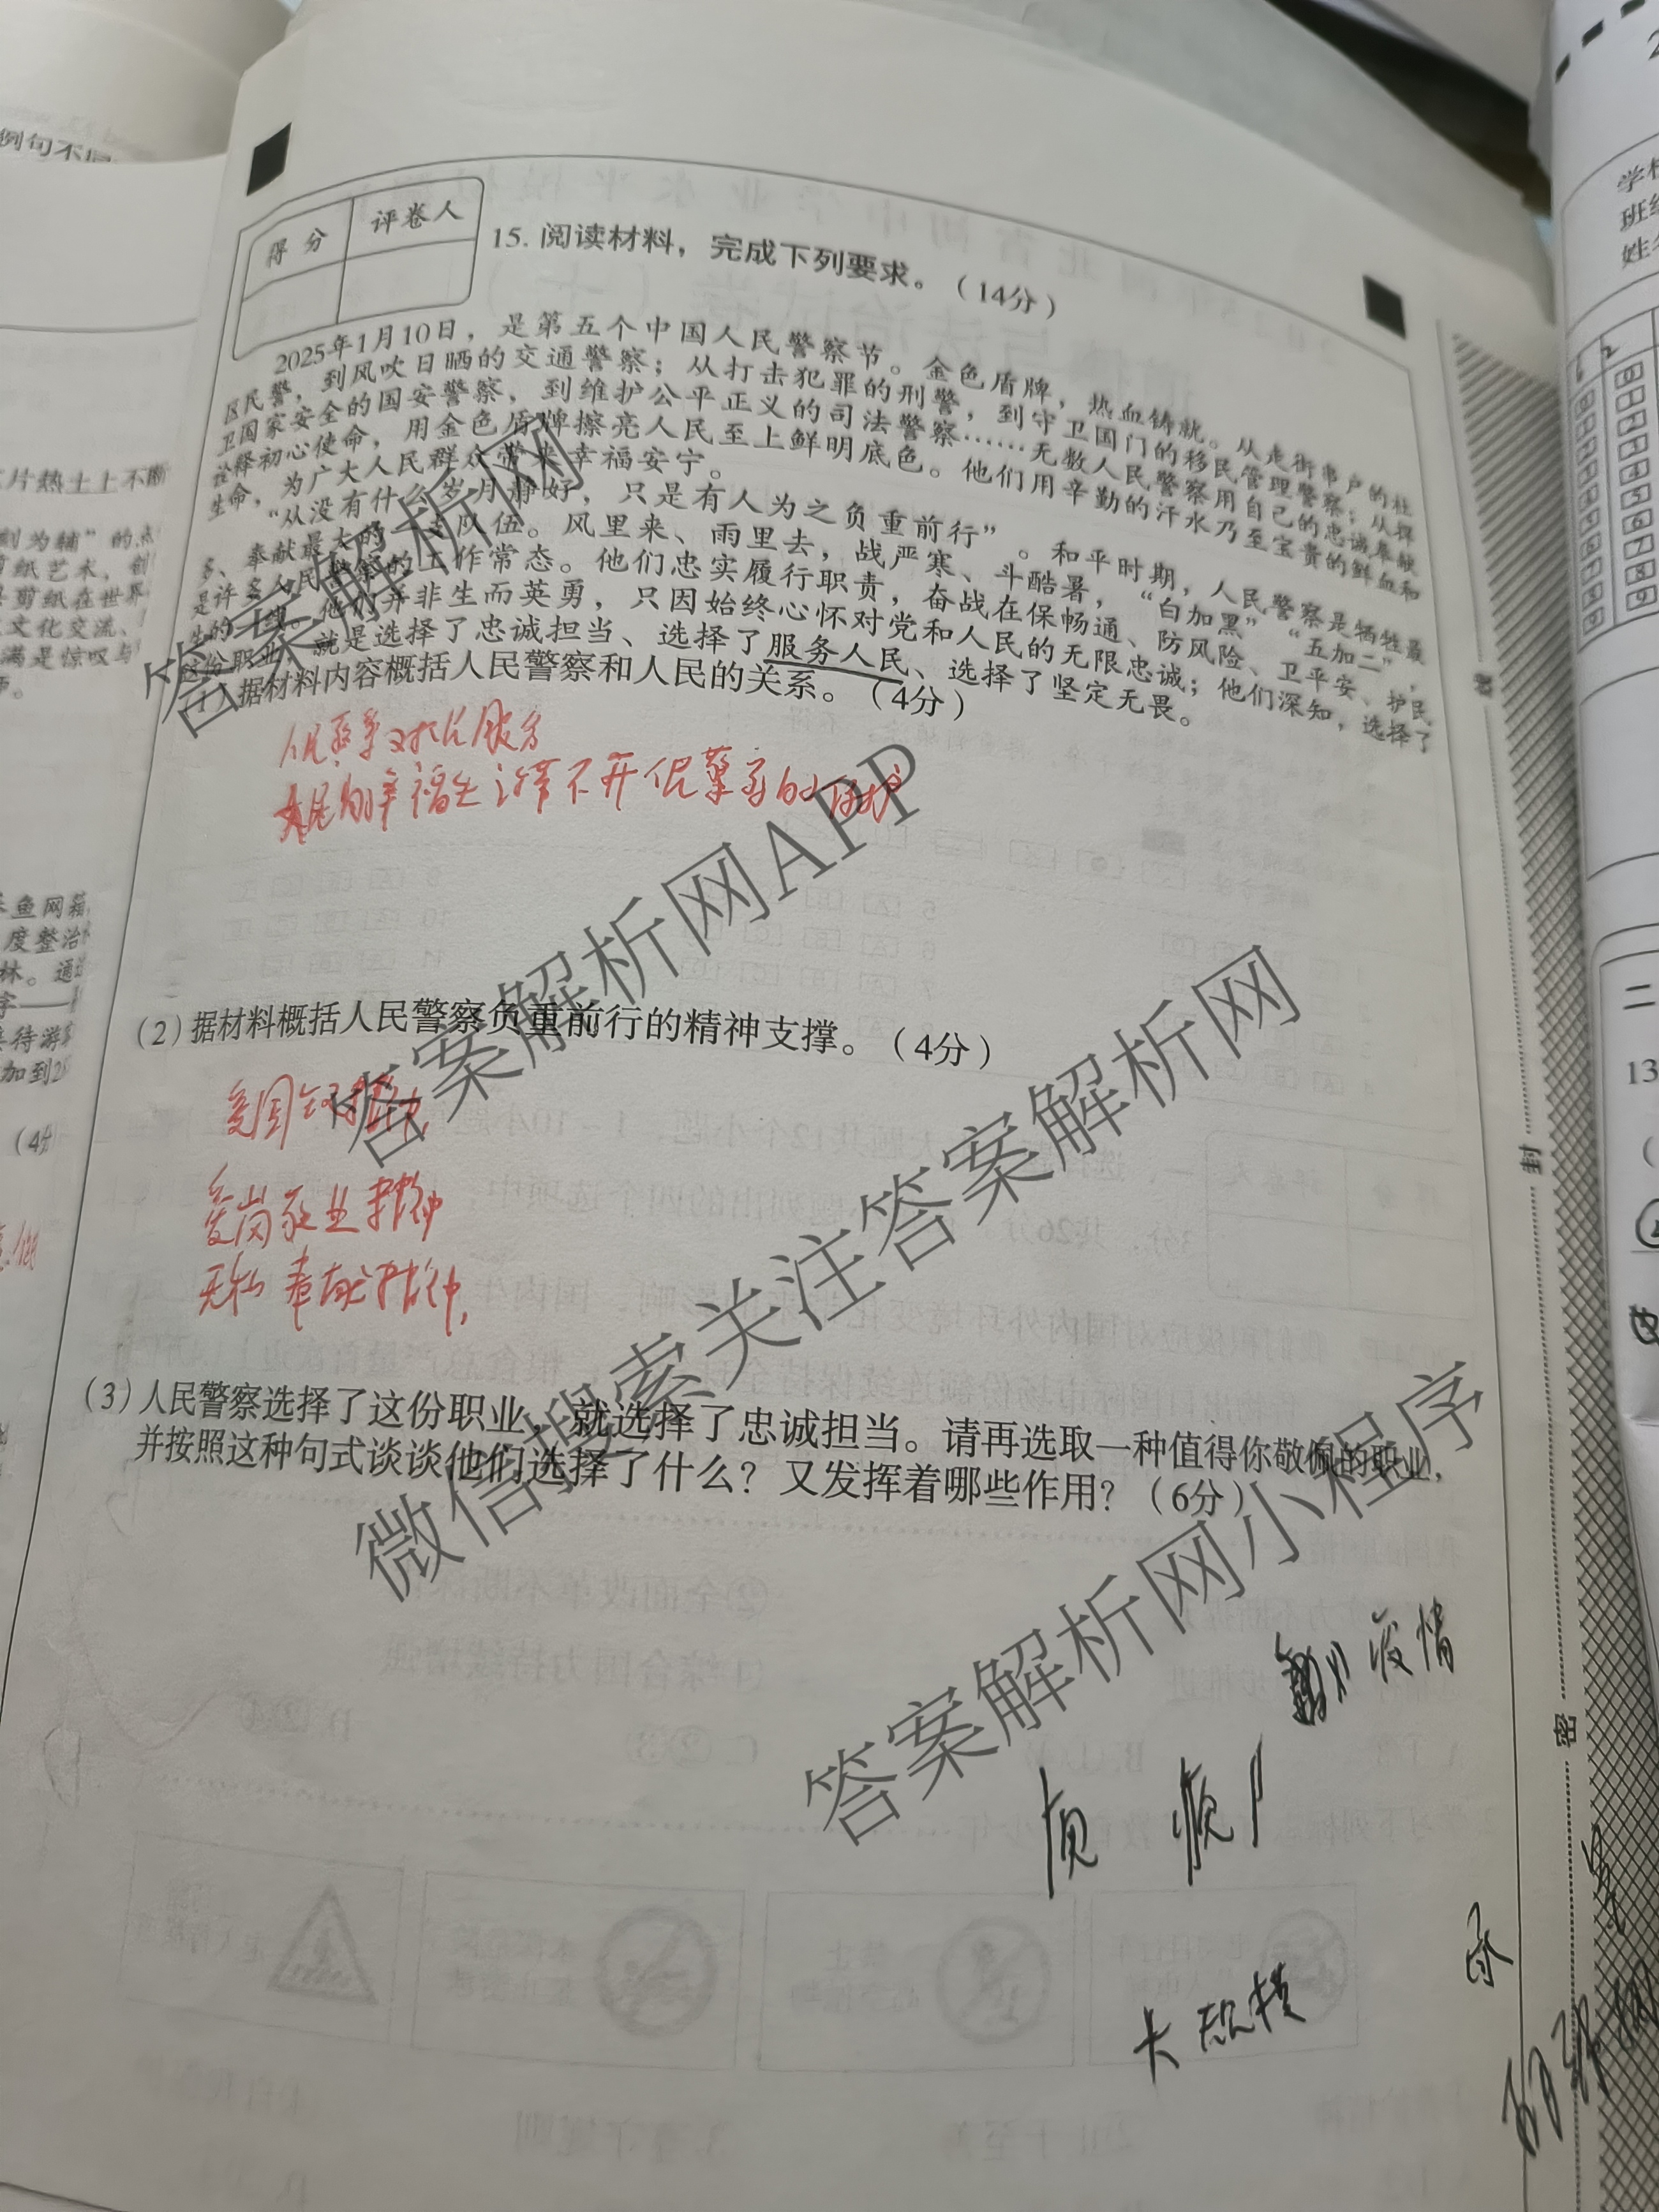 例句不
得分
评卷人
15. 阅读材料，完成下列要求。（14分）
2025年1月10日，是第五个中国人民警察节。金色盾牌，热血铸就。从走街串户的社
区民警，到风吹日晒的交通警察；从打击犯罪的刑警，到守卫国门的移民管理警察；从捍
卫国家安全的国安警察，到维护公平正义的司法警察……无数人民警察用自己的忠诚奉献
诠释初心使命，用金色盾牌擦亮人民至上鲜明底色。他们用辛勤的汗水乃至宝贵的鲜血和
生命，为广大人民群众带来幸福安宁。
“从没有什么岁月静好，只是有人为之负重前行”。和平时期，人民警察是牺牲最
多、奉献最大的一支队伍。风里来、雨里去，战严寒、斗酷暑，“白加黑”“五加二”，
是许多人民警察的工作常态。他们忠实履行职责，奋战在保畅通、防风险、卫平安、护民
生的一线。他们并非生而英勇，只因始终心怀对党和人民的无限忠诚；他们深知，选择了
这份职业，就是选择了忠诚担当、选择了服务人民、选择了坚定无畏。
（1）据材料内容概括人民警察和人民的关系。（4分）
人民的幸福生活离不开人民警察的保护
（2）据材料概括人民警察负重前行的精神支撑。（4分）
爱岗敬业精神
无私奉献精神
（3）人民警察选择了这份职业，就选择了忠诚担当。请再选取一种值得你敬佩的职业，
并按照这种句式谈谈他们选择了什么？又发挥着哪些作用？（6分）
疫情
大规模
封
密
答案解析网
答案解析网APP
微信搜索关注答案解析网
答案解析网小程序
片热土上不断
刻为辅”的点
剪纸艺术，创
剪纸在世界
文化交流、
满是惊叹与
鱼网箱
度整治
林。通
待游客
加到2
（4分
学校
班级
姓名
二
13